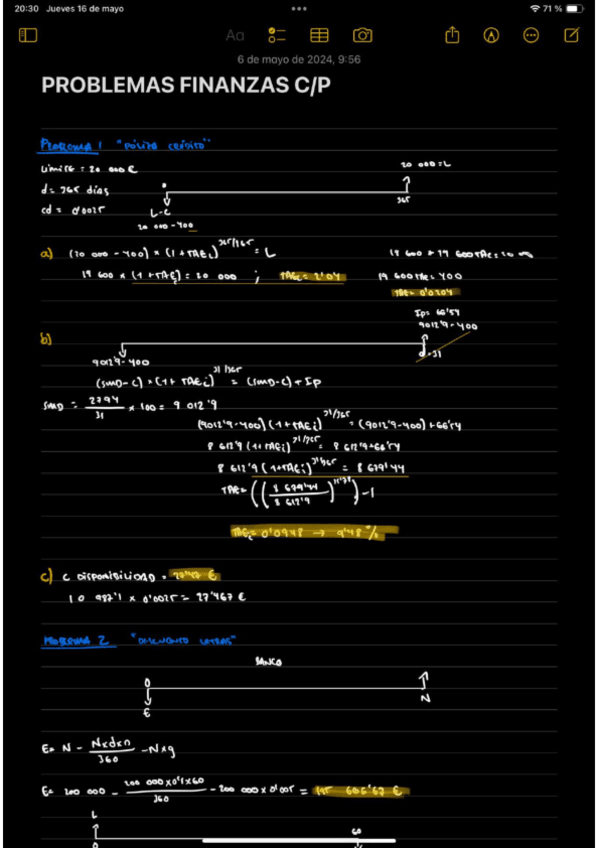 20:30 Jueves 16 de mayo
71 %
Aa
6 de mayo de 2024, 9:56
PROBLEMAS FINANZAS C/P
PROBLEMA 1 "PÓLIZA CRÉDITO"
LÍMITE = 20 000 €
20 000 = L
d = 365 días
0
365
cd = 0'0025
L-C
20 000 - 400
a) (20 000 - 400) × (1 + TAEc)^365/365 = L
19 600 + 19 600 TAE = 20 000
19 600 × (1 + TAEc) = 20 000 ; TAEc = 2'04
19 600 TAE = 400
TAE = 0'0204
Ip = 66'54
9012'9 - 400
b)
d=31
9012'9 - 400
(SMD - C) × (1 + TAEc)^31/365 = (SMD - C) + Ip
SMD = 2794/31 × 100 = 9 012'9
(9012'9 - 400) (1 + TAEc)^31/365 = (9012'9 - 400) + 66'54
8 612'9 (1 + TAEc)^31/365 = 8 612'9 + 66'54
8 612'9 (1 + TAEc)^31/365 = 8 679'44
TAE = ((8 679'44/8 612'9)^11'78) - 1
TAEc = 0'0948 → 9'48 %
c) C DISPONIBILIDAD = 27'47 €
10 987'1 × 0'0025 = 27'467 €
PROBLEMA 2 "DESCUENTO LETRAS"
BANCO
0
E
N
E = N - N×d×n/360 - N×g
E = 200 000 - 200 000×0'1×60/360 - 200 000 × 0'005 = 195 666'67 €
L
60
0